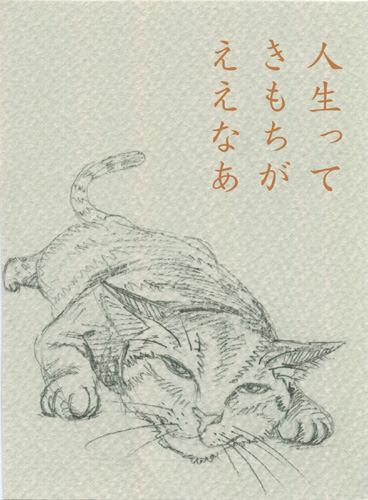 人生って
きもちが
ええなあ